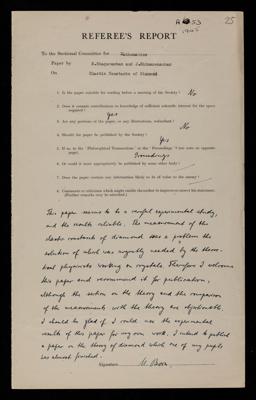 A 53
25
1945
REFEREE'S REPORT
To the Sectional Committee for Mathematics
Paper by S.Bhagavantam and J.Bhimasenachar
On Elastic Constants of Diamond
1. Is the paper suitable for reading before a meeting of the Society? No
2. Does it contain contributions to knowledge of sufficient scientific interest for the space
required? Yes
3. Are any portions of the paper, or any illustrations, redundant?
No
4. Should the paper be published by the Society?
Yes
5. If so, in the 'Philosophical Transactions,' or the 'Proceedings'?
Proceedings
6. Or could it more appropriately be published by some other body?
7. Does the paper contain any information likely to be of value to the enemy?
8. Comments or criticisms which might enable the author to improve or correct his statement.
(Further remarks may be attached.)
This paper seems to be a careful experimental study,
and the results reliable. The measurement of the
elastic constants of diamond was a problem the
solution of which was urgently needed by the theore-
tical physicists working on crystals. Therefore I welcome
this paper and recommend it for publication,
although the section on the theory and the comparison
of the measurements with the theory are objectionable.
I should be glad if I could use the experimental
results of this paper for my own work. I intend to publish
a paper on the theory of diamond which one of my pupils
has almost finished.
Signature M. Born